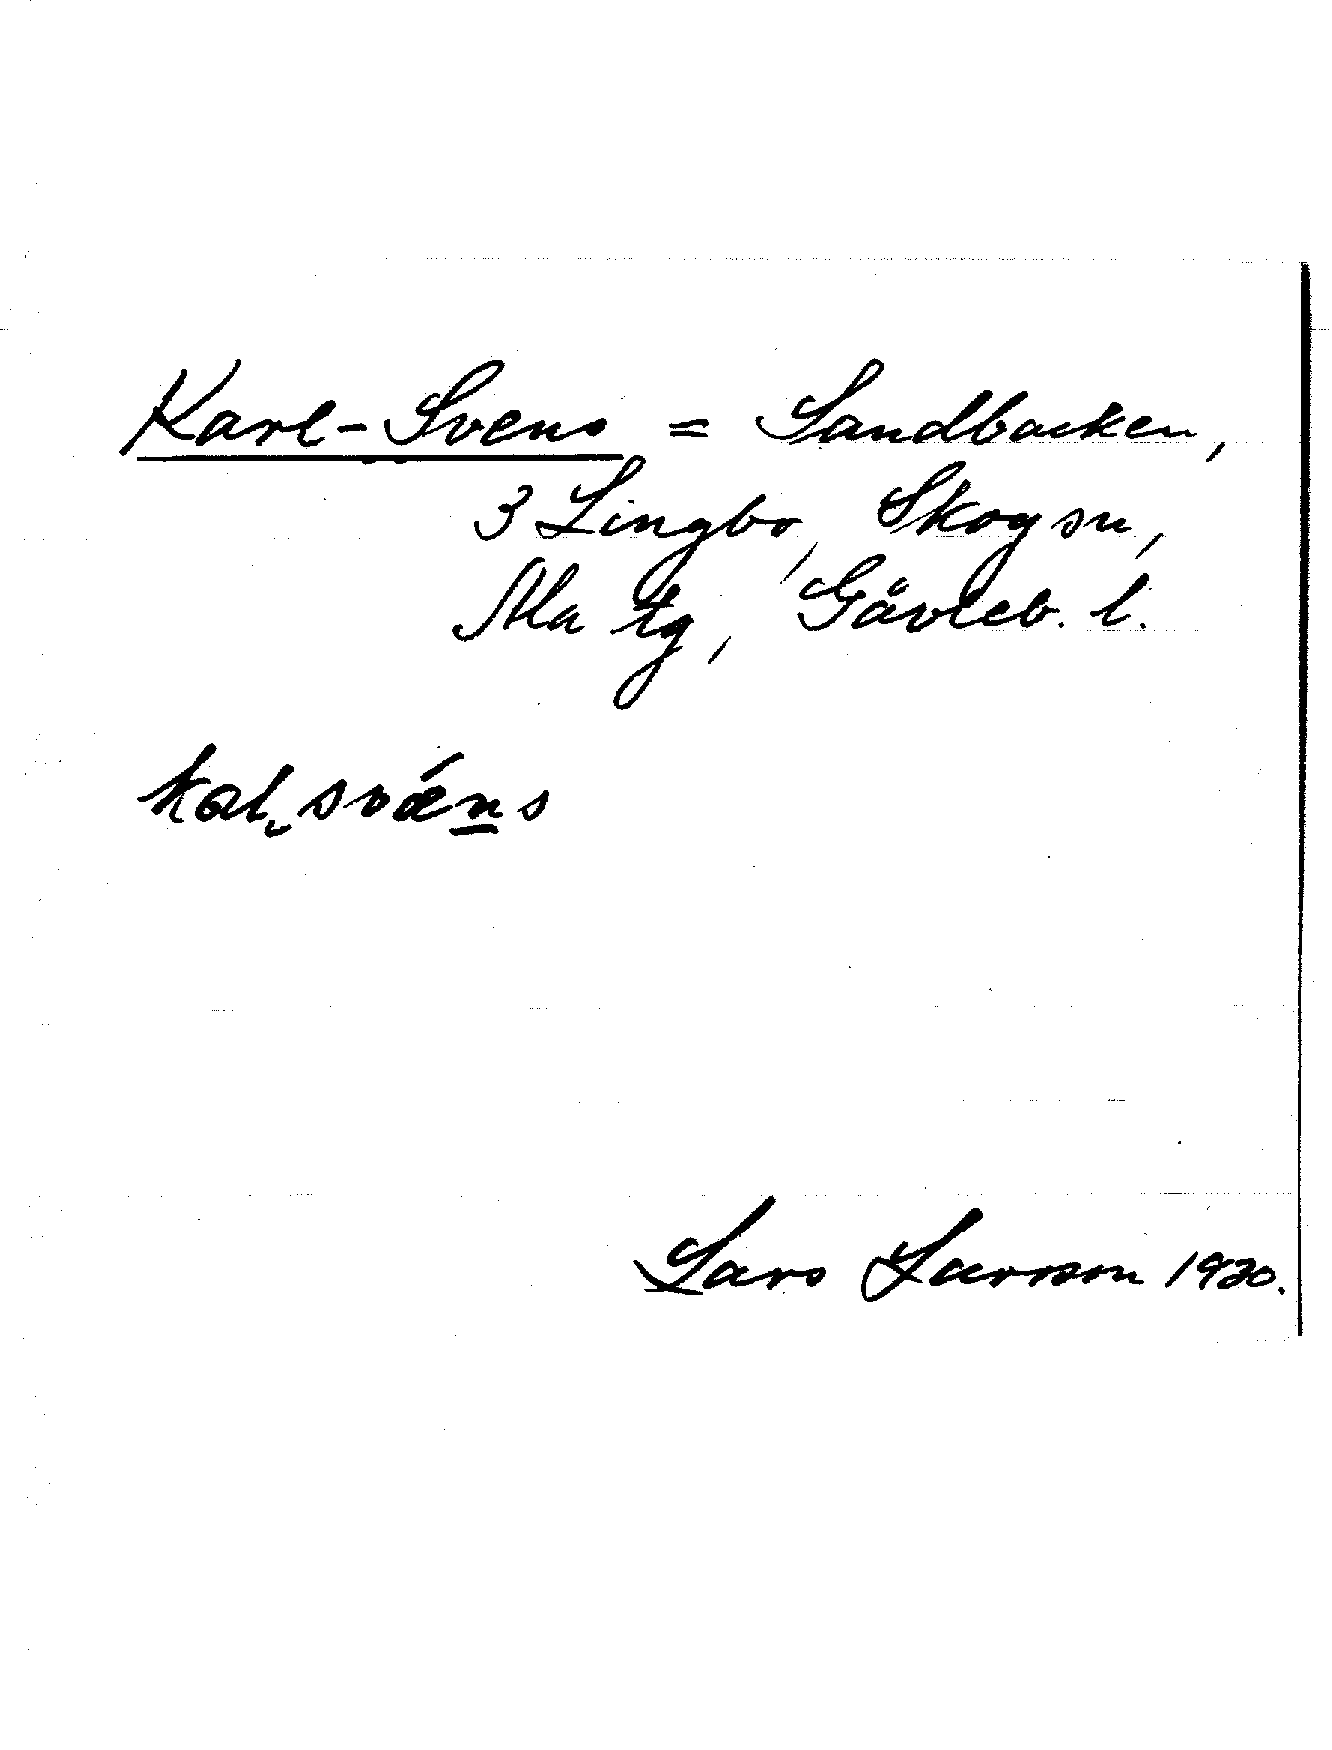 Karl-Svens = Sandbacken,
3 Lingbo, Skog sn,
Ala tg, Gävleb. l.
kal, svǽns
Lars Larsson 1930.